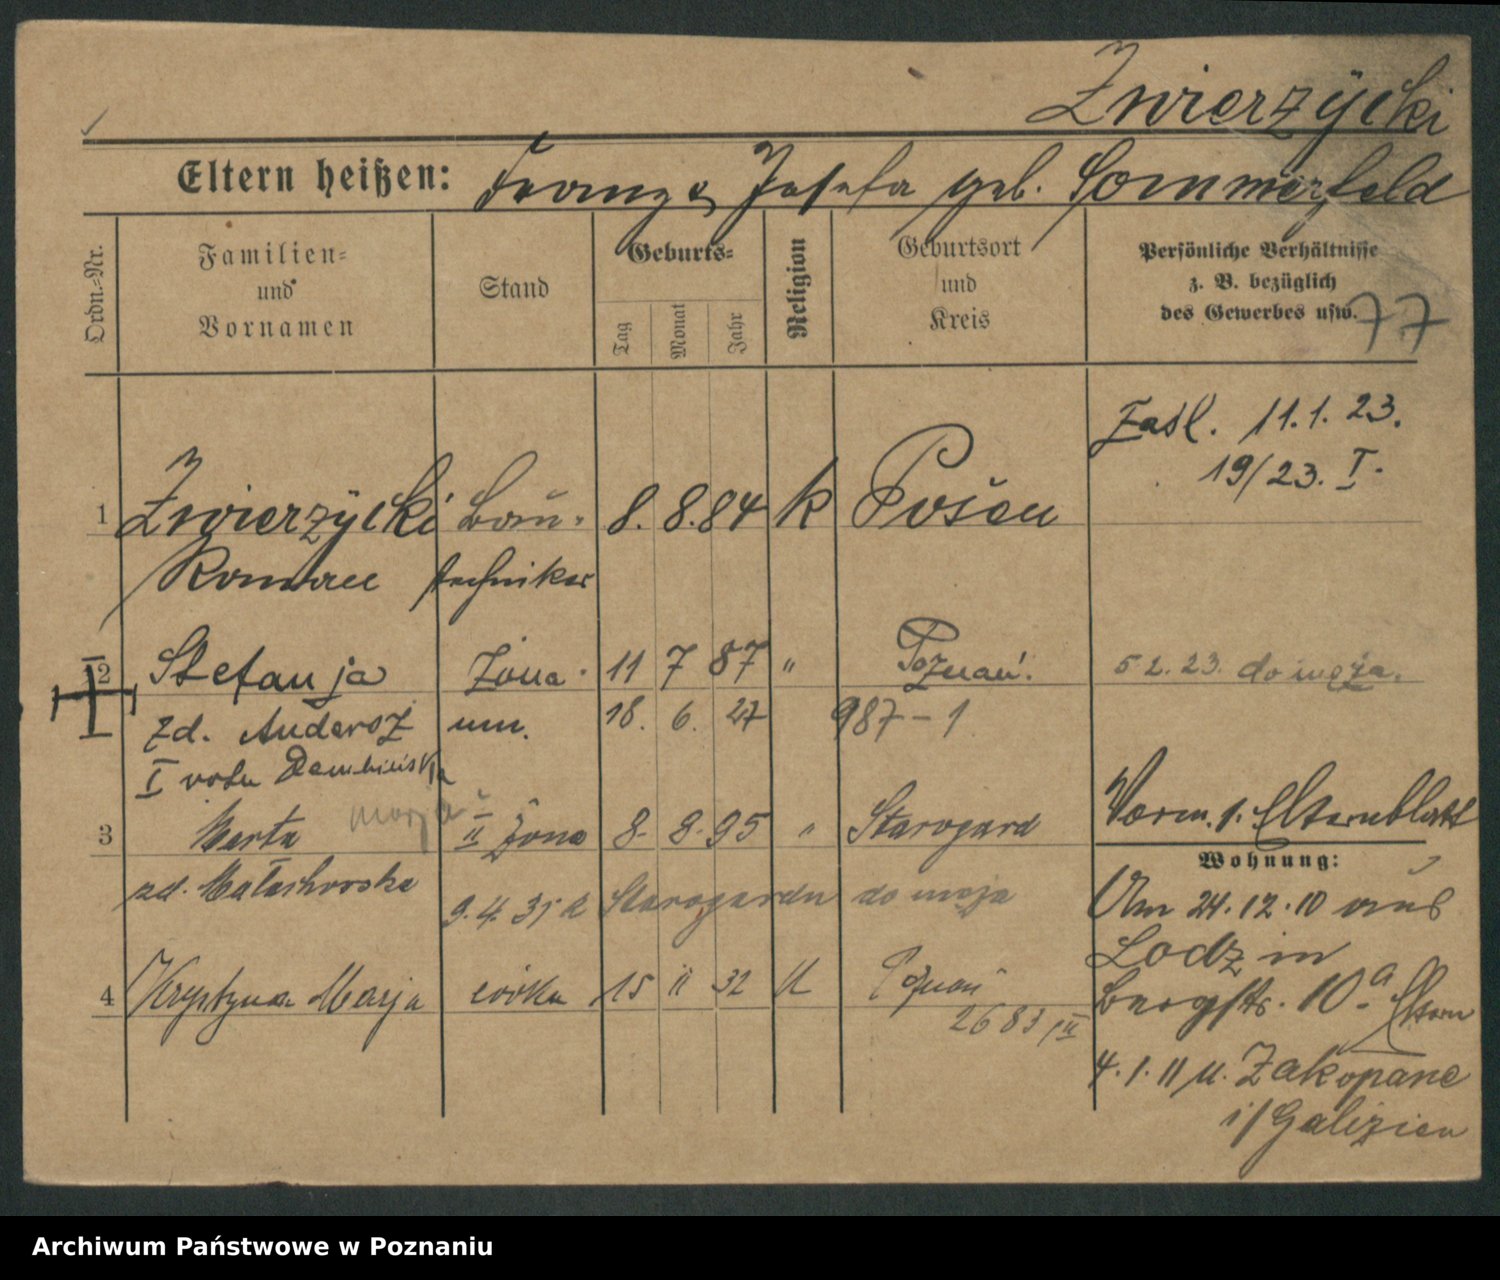 Zwierzÿcki
Eltern heißen: Franz & Josefa geb. Sommerfeld
Ordn.-Nr.
Familien- und Vornamen
Stand
Geburts-
Tag
Monat
Jahr
Religion
Geburtsort und Kreis
Persönliche Verhältnisse
z. B. bezüglich
des Gewerbes usw.
77
Zasl. 11.1.23.
19/23. I.
1 Zwierzÿcki Bau- 8. 8. 84 k Posen
Roman techniker
2 Stefanja Żona 11 7 87 " Poznań 5 2. 23. do męża.
zd. Andersz um. 18. 6. 27 987-1
I voto Dembińska
marja
3 Marta II Żona 8. 8. 95 " Starogard Verm. s. Elternblatt
Wohnung:
zd. Małachowska 9. 4. 31 z Starogardu do męża
Am 24.12.10 aus
Lodz in
4 Krystyna Marja córka 15 11 32 k Poznań
2683/II
Bergstr. 10.a Eltern
4.1.11 n. Zakopane
i/Galizien
Archiwum Państwowe w Poznaniu